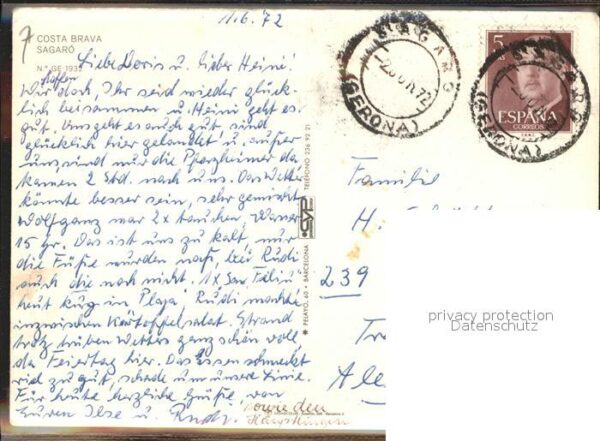 7
1.6.72
COSTA BRAVA
SAGARÓ
N.º GE 193
Liebe Doris u. lieber Heini!
hoffen
Wir doch, Ihr seid wieder glück-
lich beisammen u. Heini geht es
gut. Uns geht es auch gut, sind
glücklich hier gelandet u. außer
uns sind nur die Pforzheimer da
kamen 2 Std. nach uns. Das Wetter
könnte besser sein, sehr gemischt
Wolfgang war 2x tauchen, Wasser
15 gr. Das ist uns zu kalt, nur
die Füße wurden naß, bei Rudi
auch die noch nicht. 1x San Feliu
heut kurz in Playa. Rudi machte
inzwischen Kartoffelsalat. Strand
trotz trüben Wetters ganz schön voll,
da Feiertag hier. Das Essen schmeckt
viel zu gut, schade um unsere Linie.
Für heute herzliche Grüße, von
Euren Ilse u. Rudi.
sowie den
PELAYO, 60 • BARCELONA
TELEFONO 236 92 21
SAGARO
(GERONA)
5
ESPAÑA
CORREOS
SAGARO
(GERONA)
Familie
H.
239
privacy protection
Datenschutz